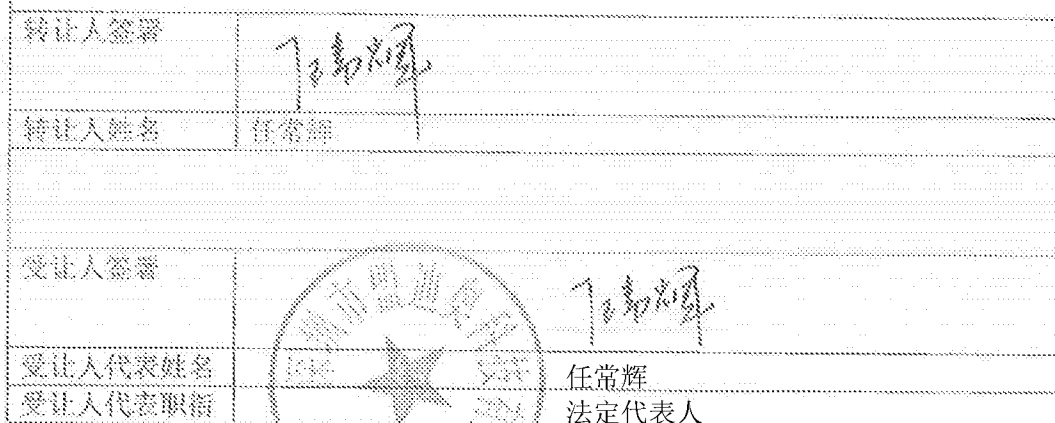 转让人签署
任常辉
转让人姓名 任常辉
受让人签署
任常辉
受让人代表姓名 任常辉
受让人代表职衔 法定代表人